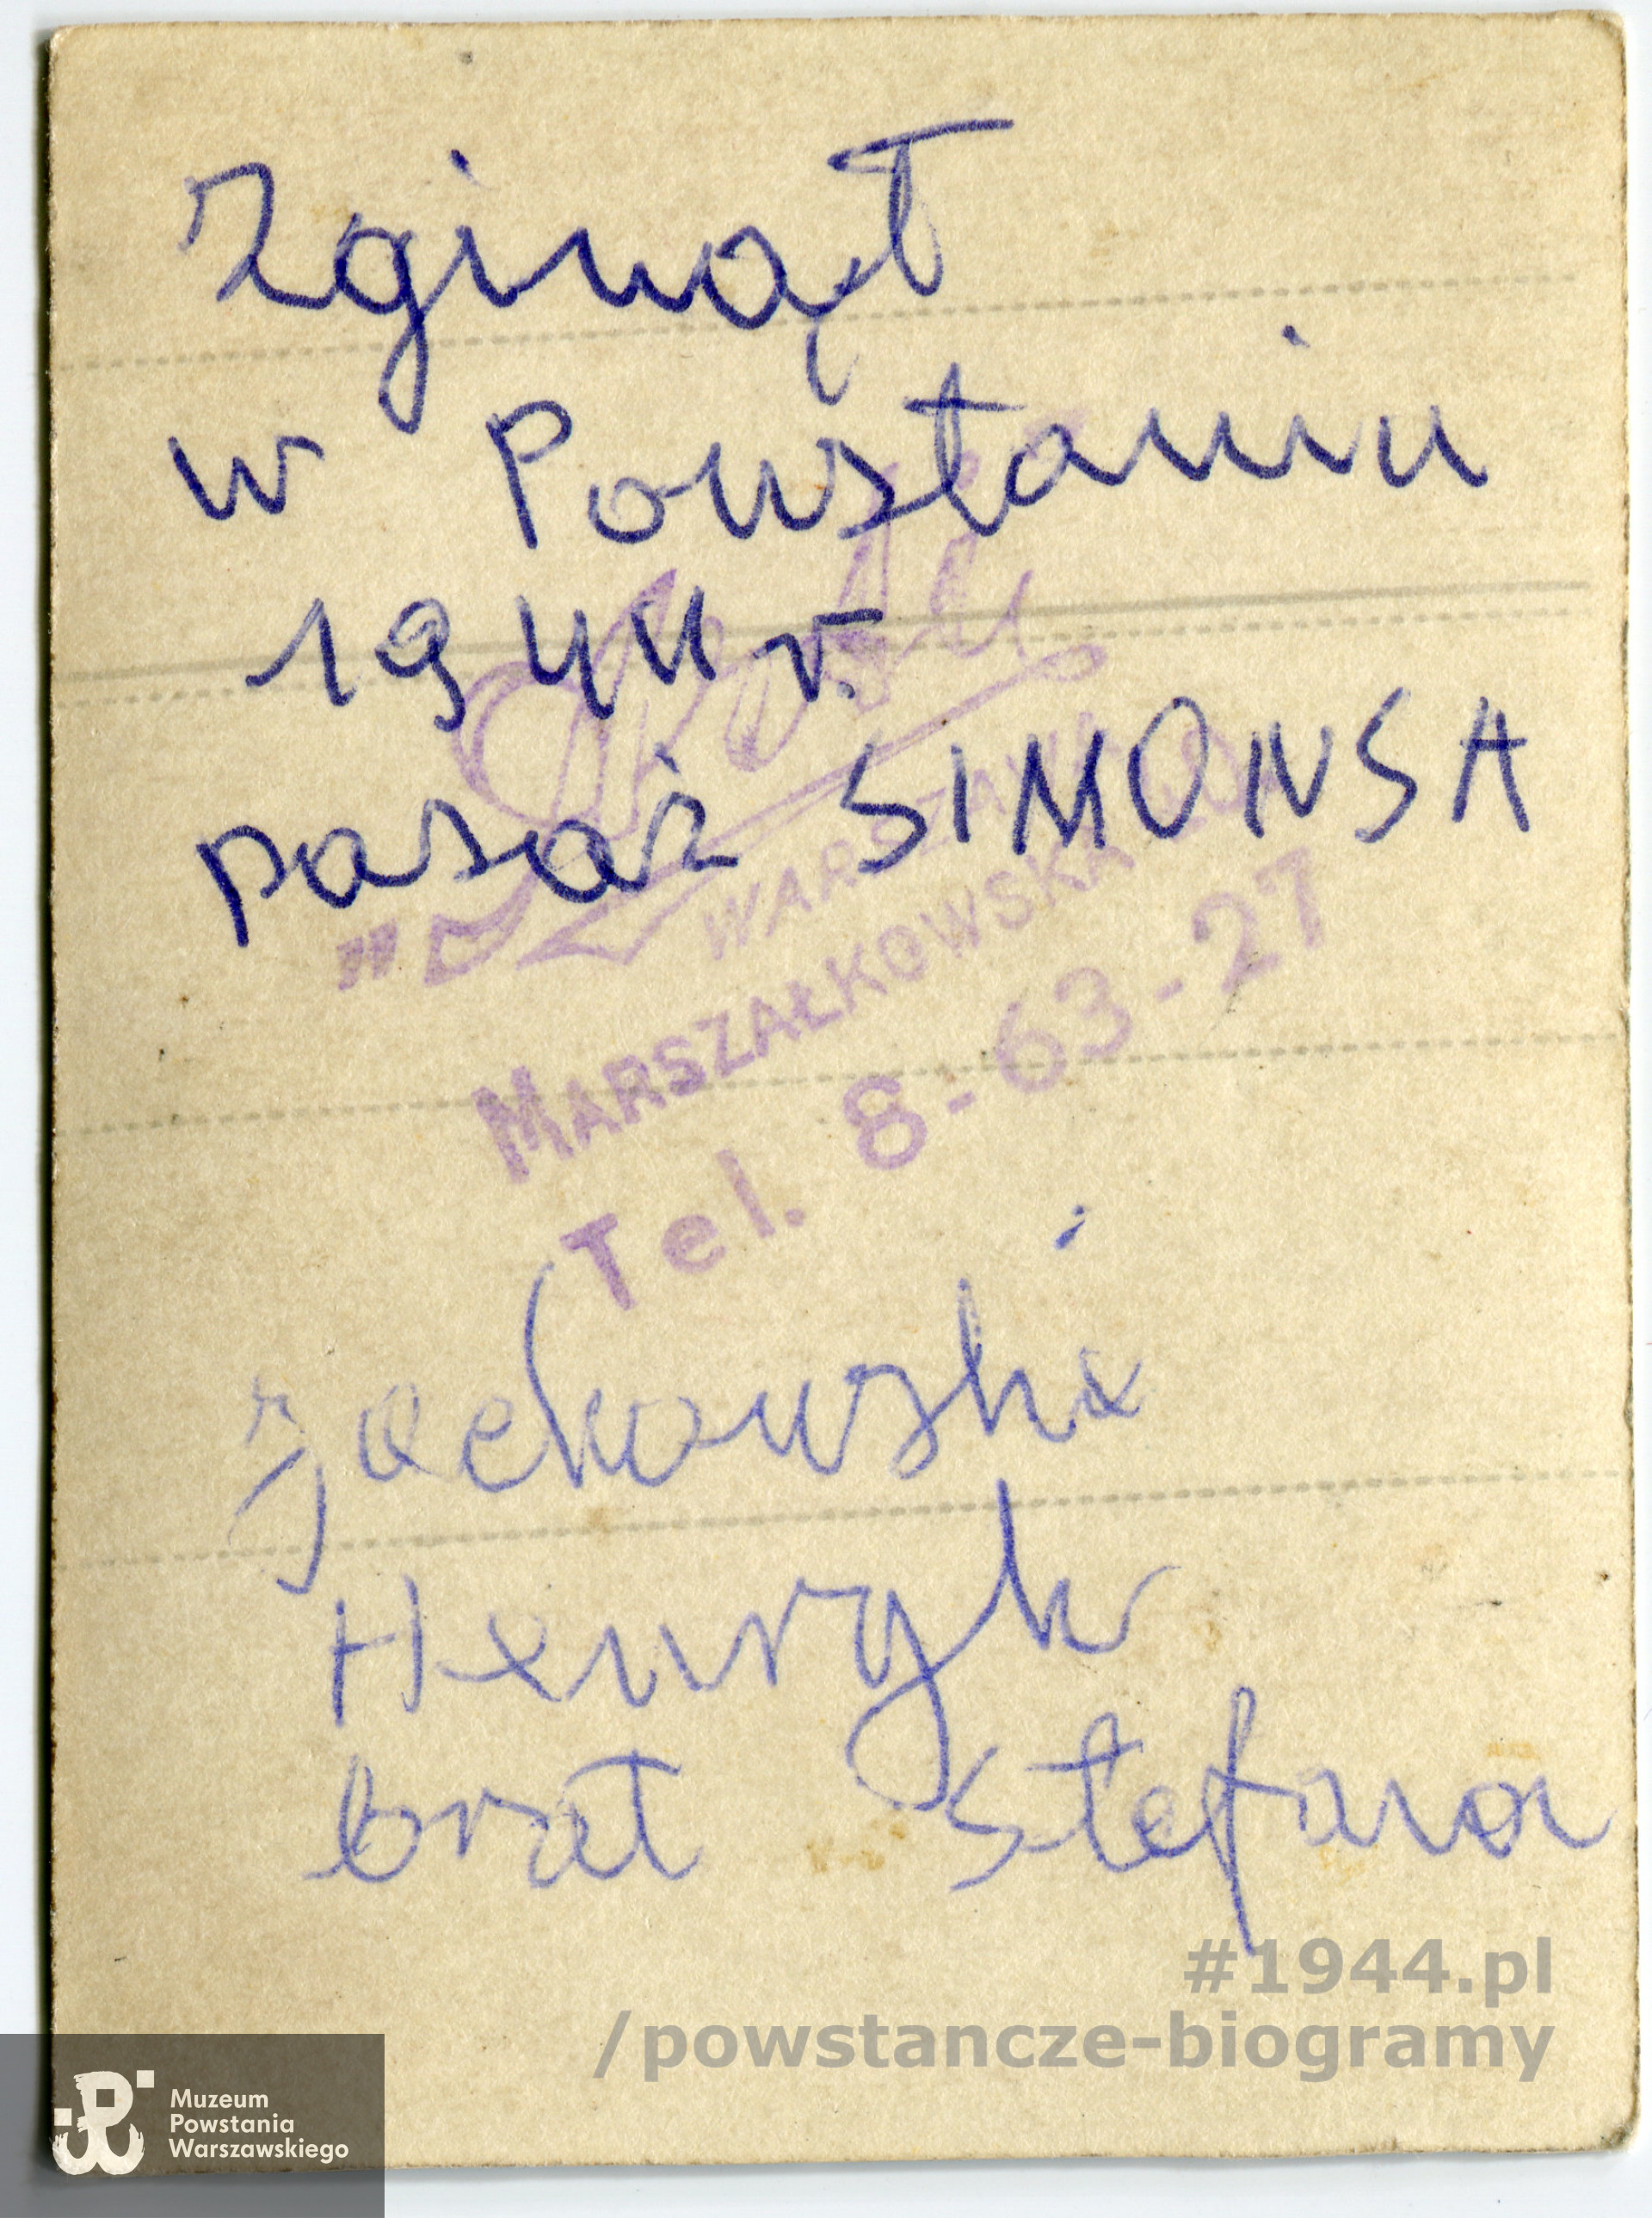 Zginął
w Powstaniu
1944 r.
pasaż SIMONSA
WARSZAWA
MARSZAŁKOWSKA
Tel. 8-63-27
Żackowski
Henryk
brat Stefana
#1944.pl
/powstancze-biogramy
Muzeum
Powstania
Warszawskiego